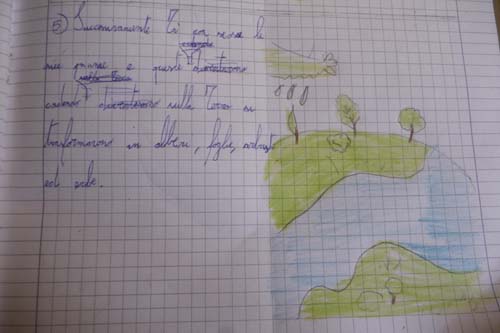 5 Successivamente Ti perse le
sue piume e queste diventarono
cadendo diventarono sulla Terra si
trasformarono in alberi, foglie, arbusti
ed erbe.